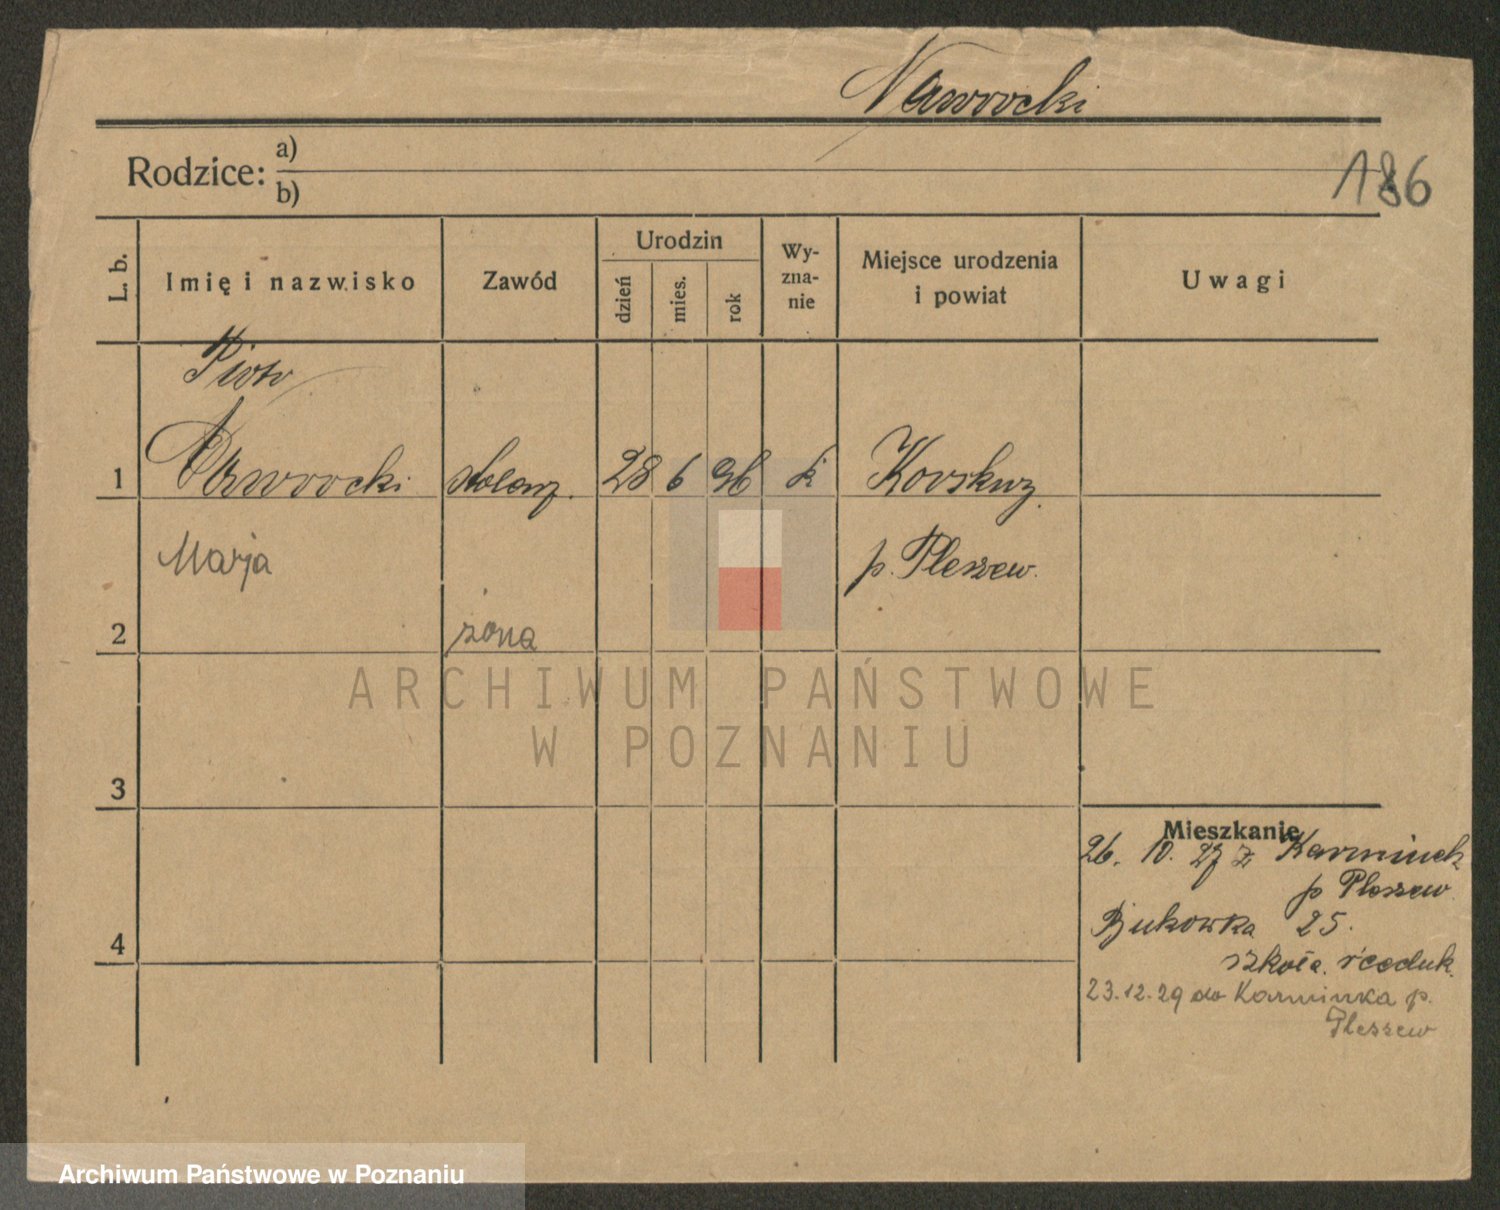 Nawrocki
Rodzice: a)
b)
186
L. b.
Imię i nazwisko
Zawód
Urodzin
dzień
mies.
rok
Wy-
zna-
nie
Miejsce urodzenia
i powiat
Uwagi
Piotr
1 Nawrocki stolarz. 28 6 96 k Korskwy.
Marja p. Pleszew.
2 żona
ARCHIWUM PAŃSTWOWE
W POZNANIU
3
Mieszkanie
26. 10. 27 z Karminek
p Pleszew
4 Bukowka 25.
szkoła
23.12.29 do Karminka p.
Pleszew
Archiwum Państwowe w Poznaniu